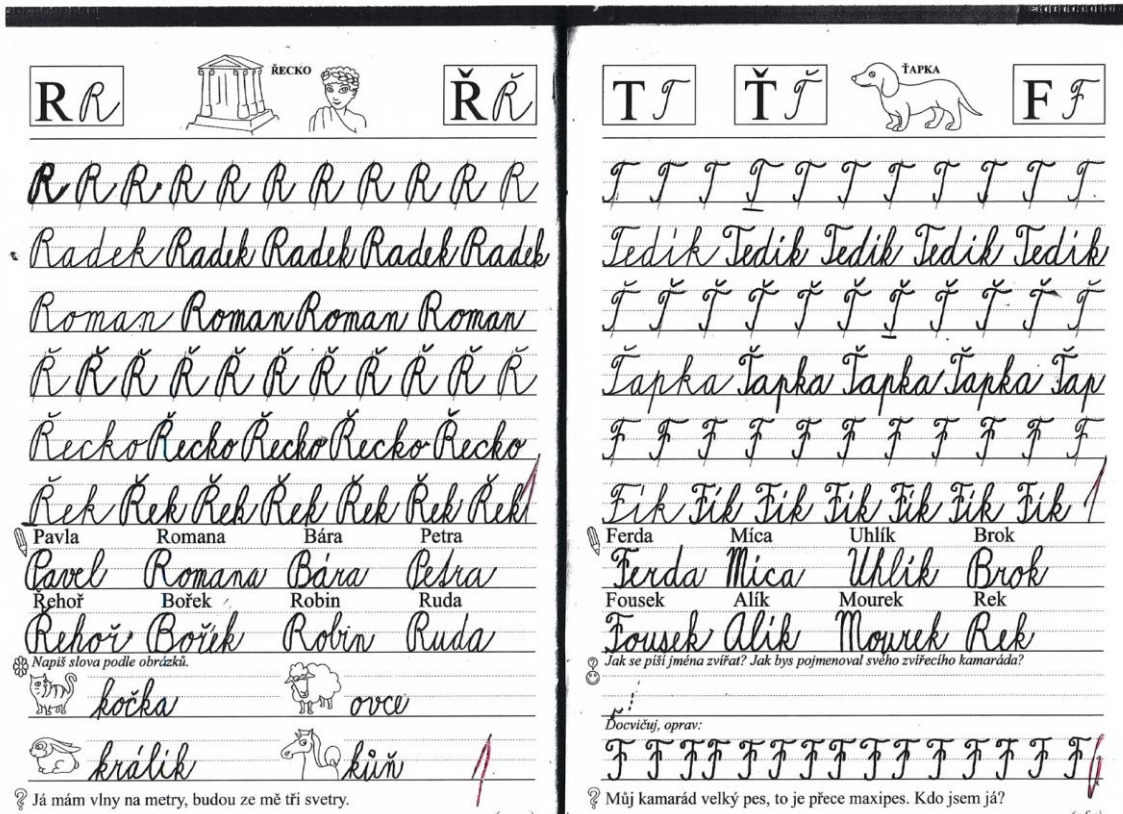 R R ŘECKO Ř Ř
R R R R R R R R R R R
Radek Radek Radek Radek Radek
Roman Roman Roman Roman
Ř Ř Ř Ř Ř Ř Ř Ř Ř Ř Ř
Řecko Řecko Řecko Řecko Řecko
Řek Řek Řek Řek Řek Řek Řek 1
Pavla Romana Bára Petra
Pavel Romana Bára Petra
Řehoř Bořek Robin Ruda
Řehoř Bořek Robin Ruda
Napiš slova podle obrázků.
kočka ovce
králík kůň 1
Já mám vlny na metry, budou ze mě tři svetry.
T T Ť Ť ŤAPKA F F
T T T T T T T T T T T
Tedík Tedík Tedík Tedík Tedík
Ť Ť Ť Ť Ť Ť Ť Ť Ť Ť Ť
Ťapka Ťapka Ťapka Ťapka Ťap
F F F F F F F F F F F
Fík Fík Fík Fík Fík Fík Fík 1
Ferda Míca Uhlík Brok
Ferda Míca Uhlík Brok
Fousek Alík Mourek Rek
Fousek Alík Mourek Rek
Jak se píší jména zvířat? Jak bys pojmenoval svého zvířecího kamaráda?
Docvičuj, oprav:
F F F F F F F F F F F F F
Můj kamarád velký pes, to je přece maxipes. Kdo jsem já?